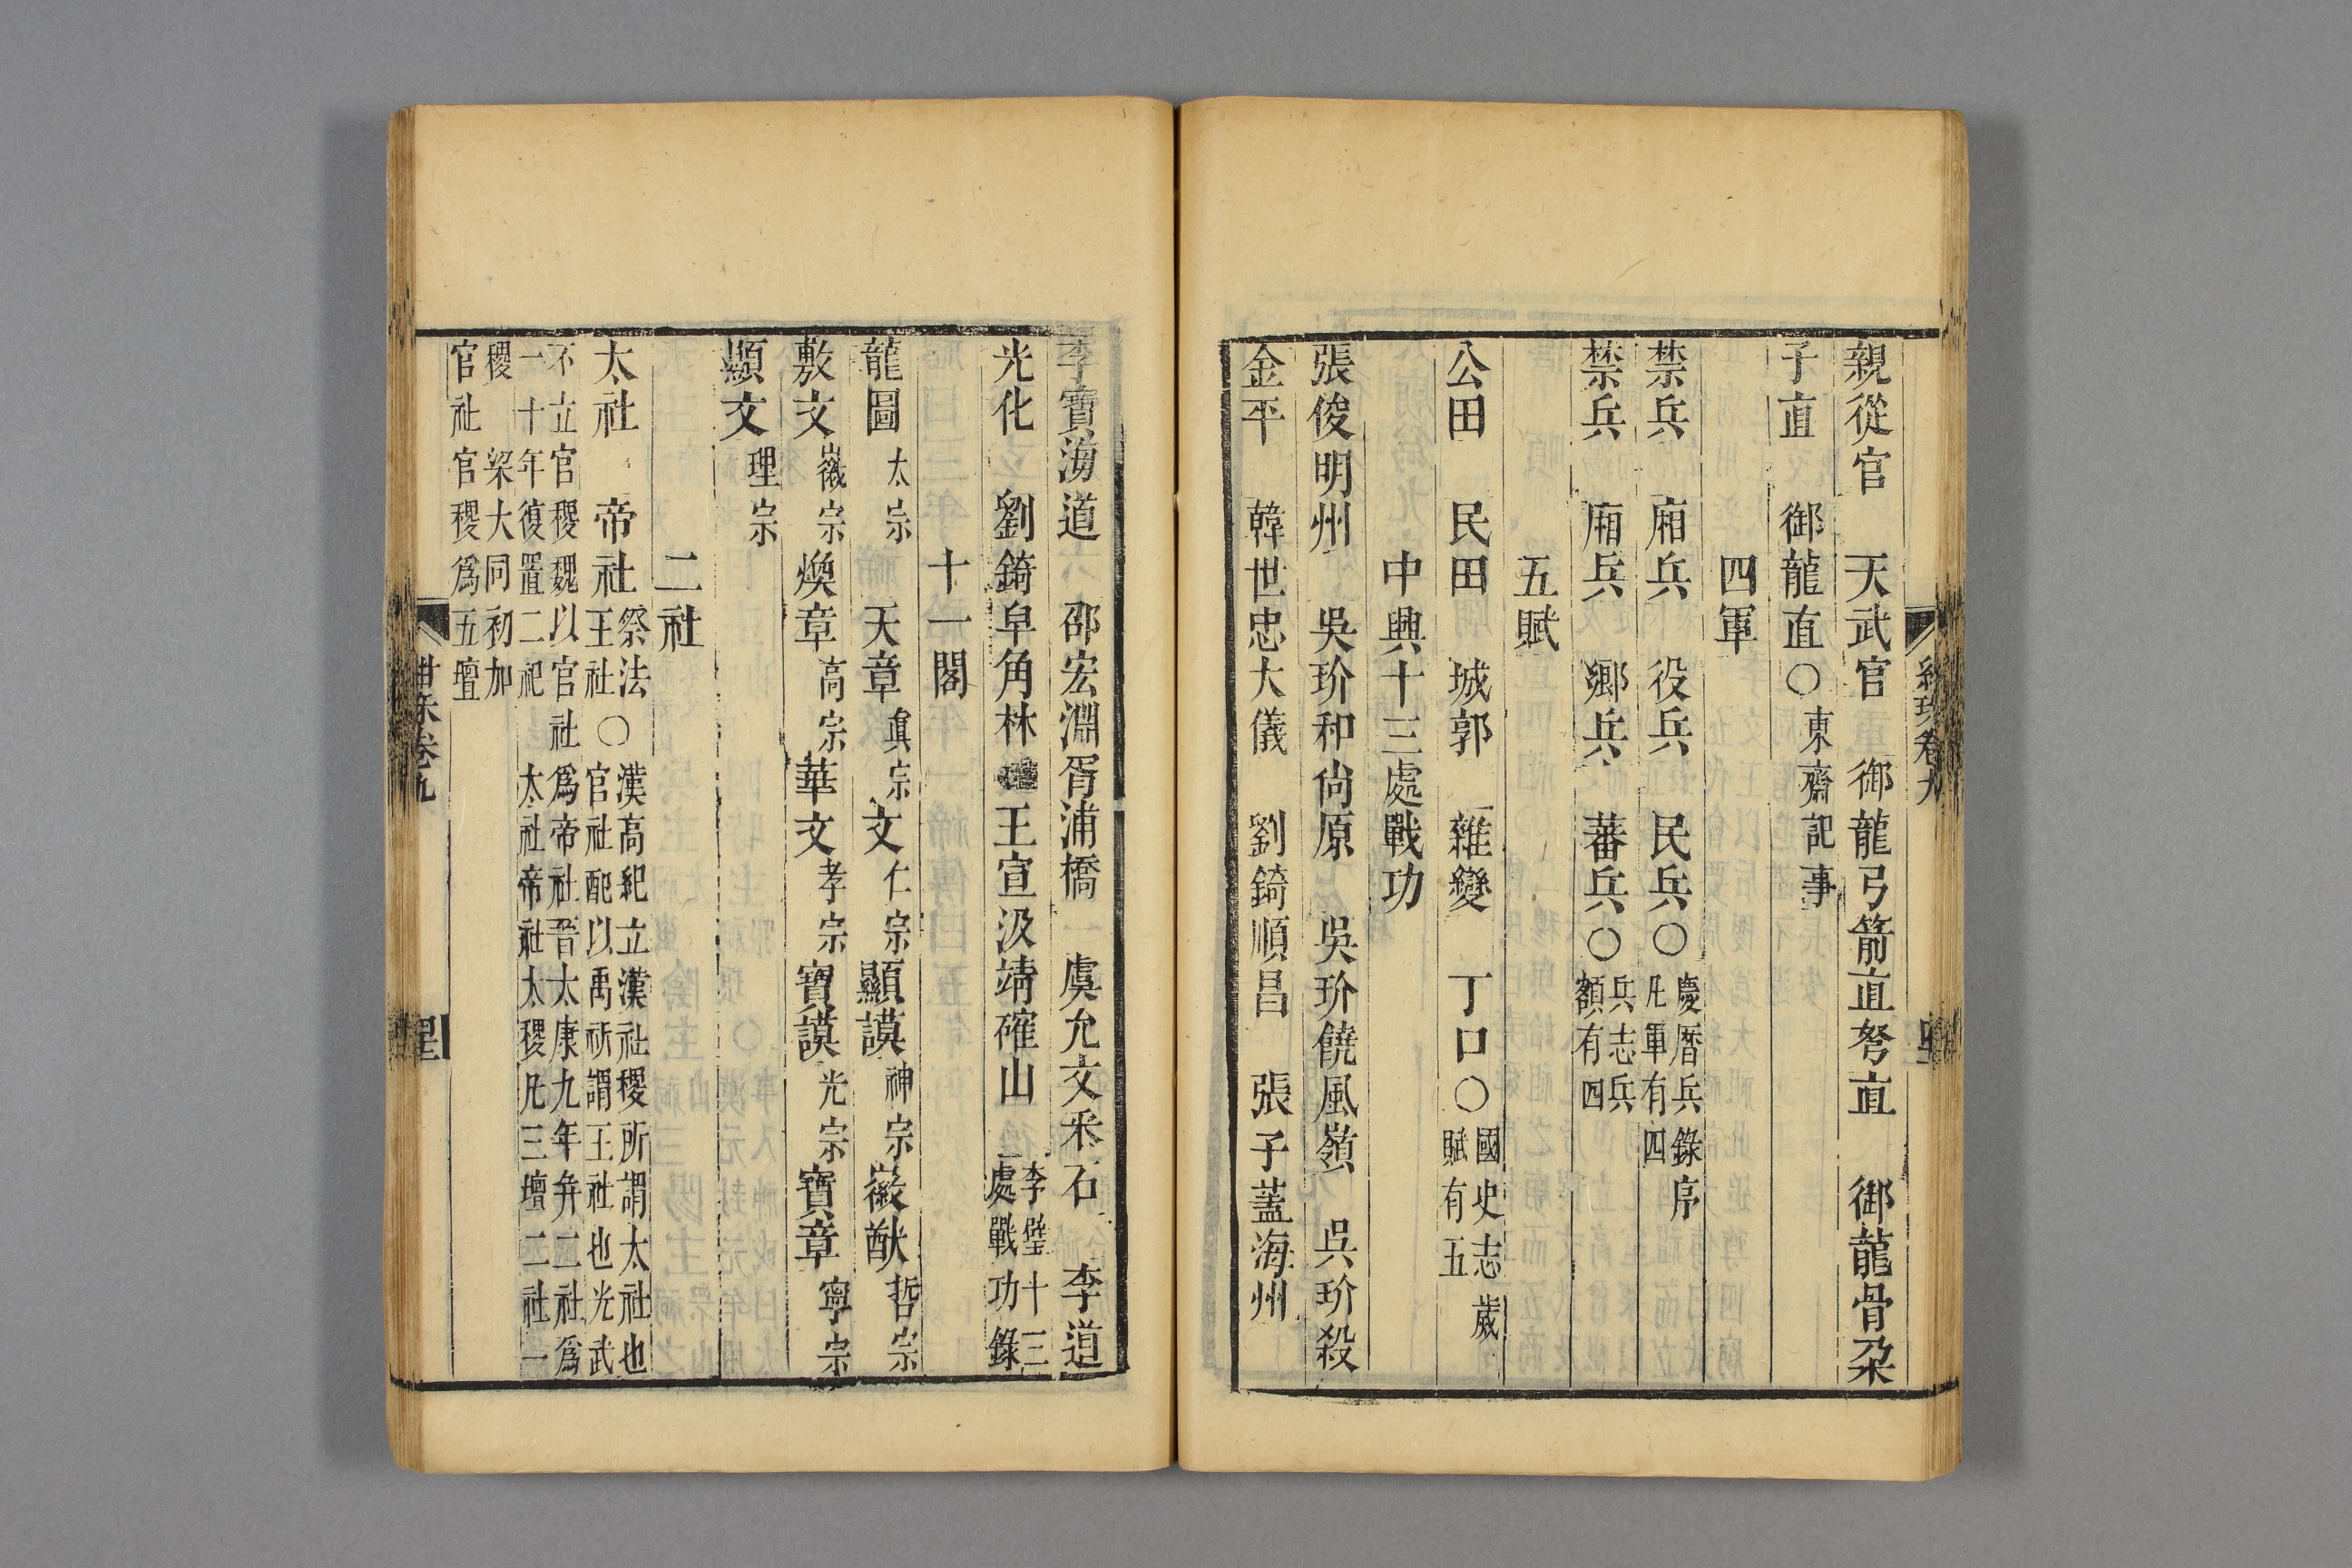 親從官 天武官 御龍弓箭直弩直 御龍骨朶
子直 御龍直〇東齋記事
四軍
禁兵 廂兵 役兵 民兵〇慶曆兵錄序
凡軍有四
禁兵 廂兵 鄉兵 蕃兵〇兵志兵
額有四
五賦
公田 民田 城郭 雜變 丁口〇國史志歲
賦有五
中興十三處戰功
張俊明州 吳玠和尚原 吳玠饒風嶺 吳玠殺
金平 韓世忠大儀 劉錡順昌 張子蓋海州
李寶海道 邵宏淵胥浦橋 虞允文采石 李道
光化 劉錡皁角林 王宣汲靖確山 李壁十三
處戰功錄
十一閣
龍圖太宗 天章眞宗 文仁宗 顯謨神宗 徽猷哲宗
敷文徽宗 煥章高宗 華文孝宗 寶謨光宗 寶章寧宗
顯文理宗
二社
太社 帝社祭法
王社〇漢高紀立漢社稷所謂太社也
官社配以禹所謂王社也光武
不立官稷魏以官社爲帝社晉太康九年幷二社爲
一十年復置二祀 太社帝社太稷凡三壇二社一
稷 梁大同初加
官社官稷爲五壇
卷九